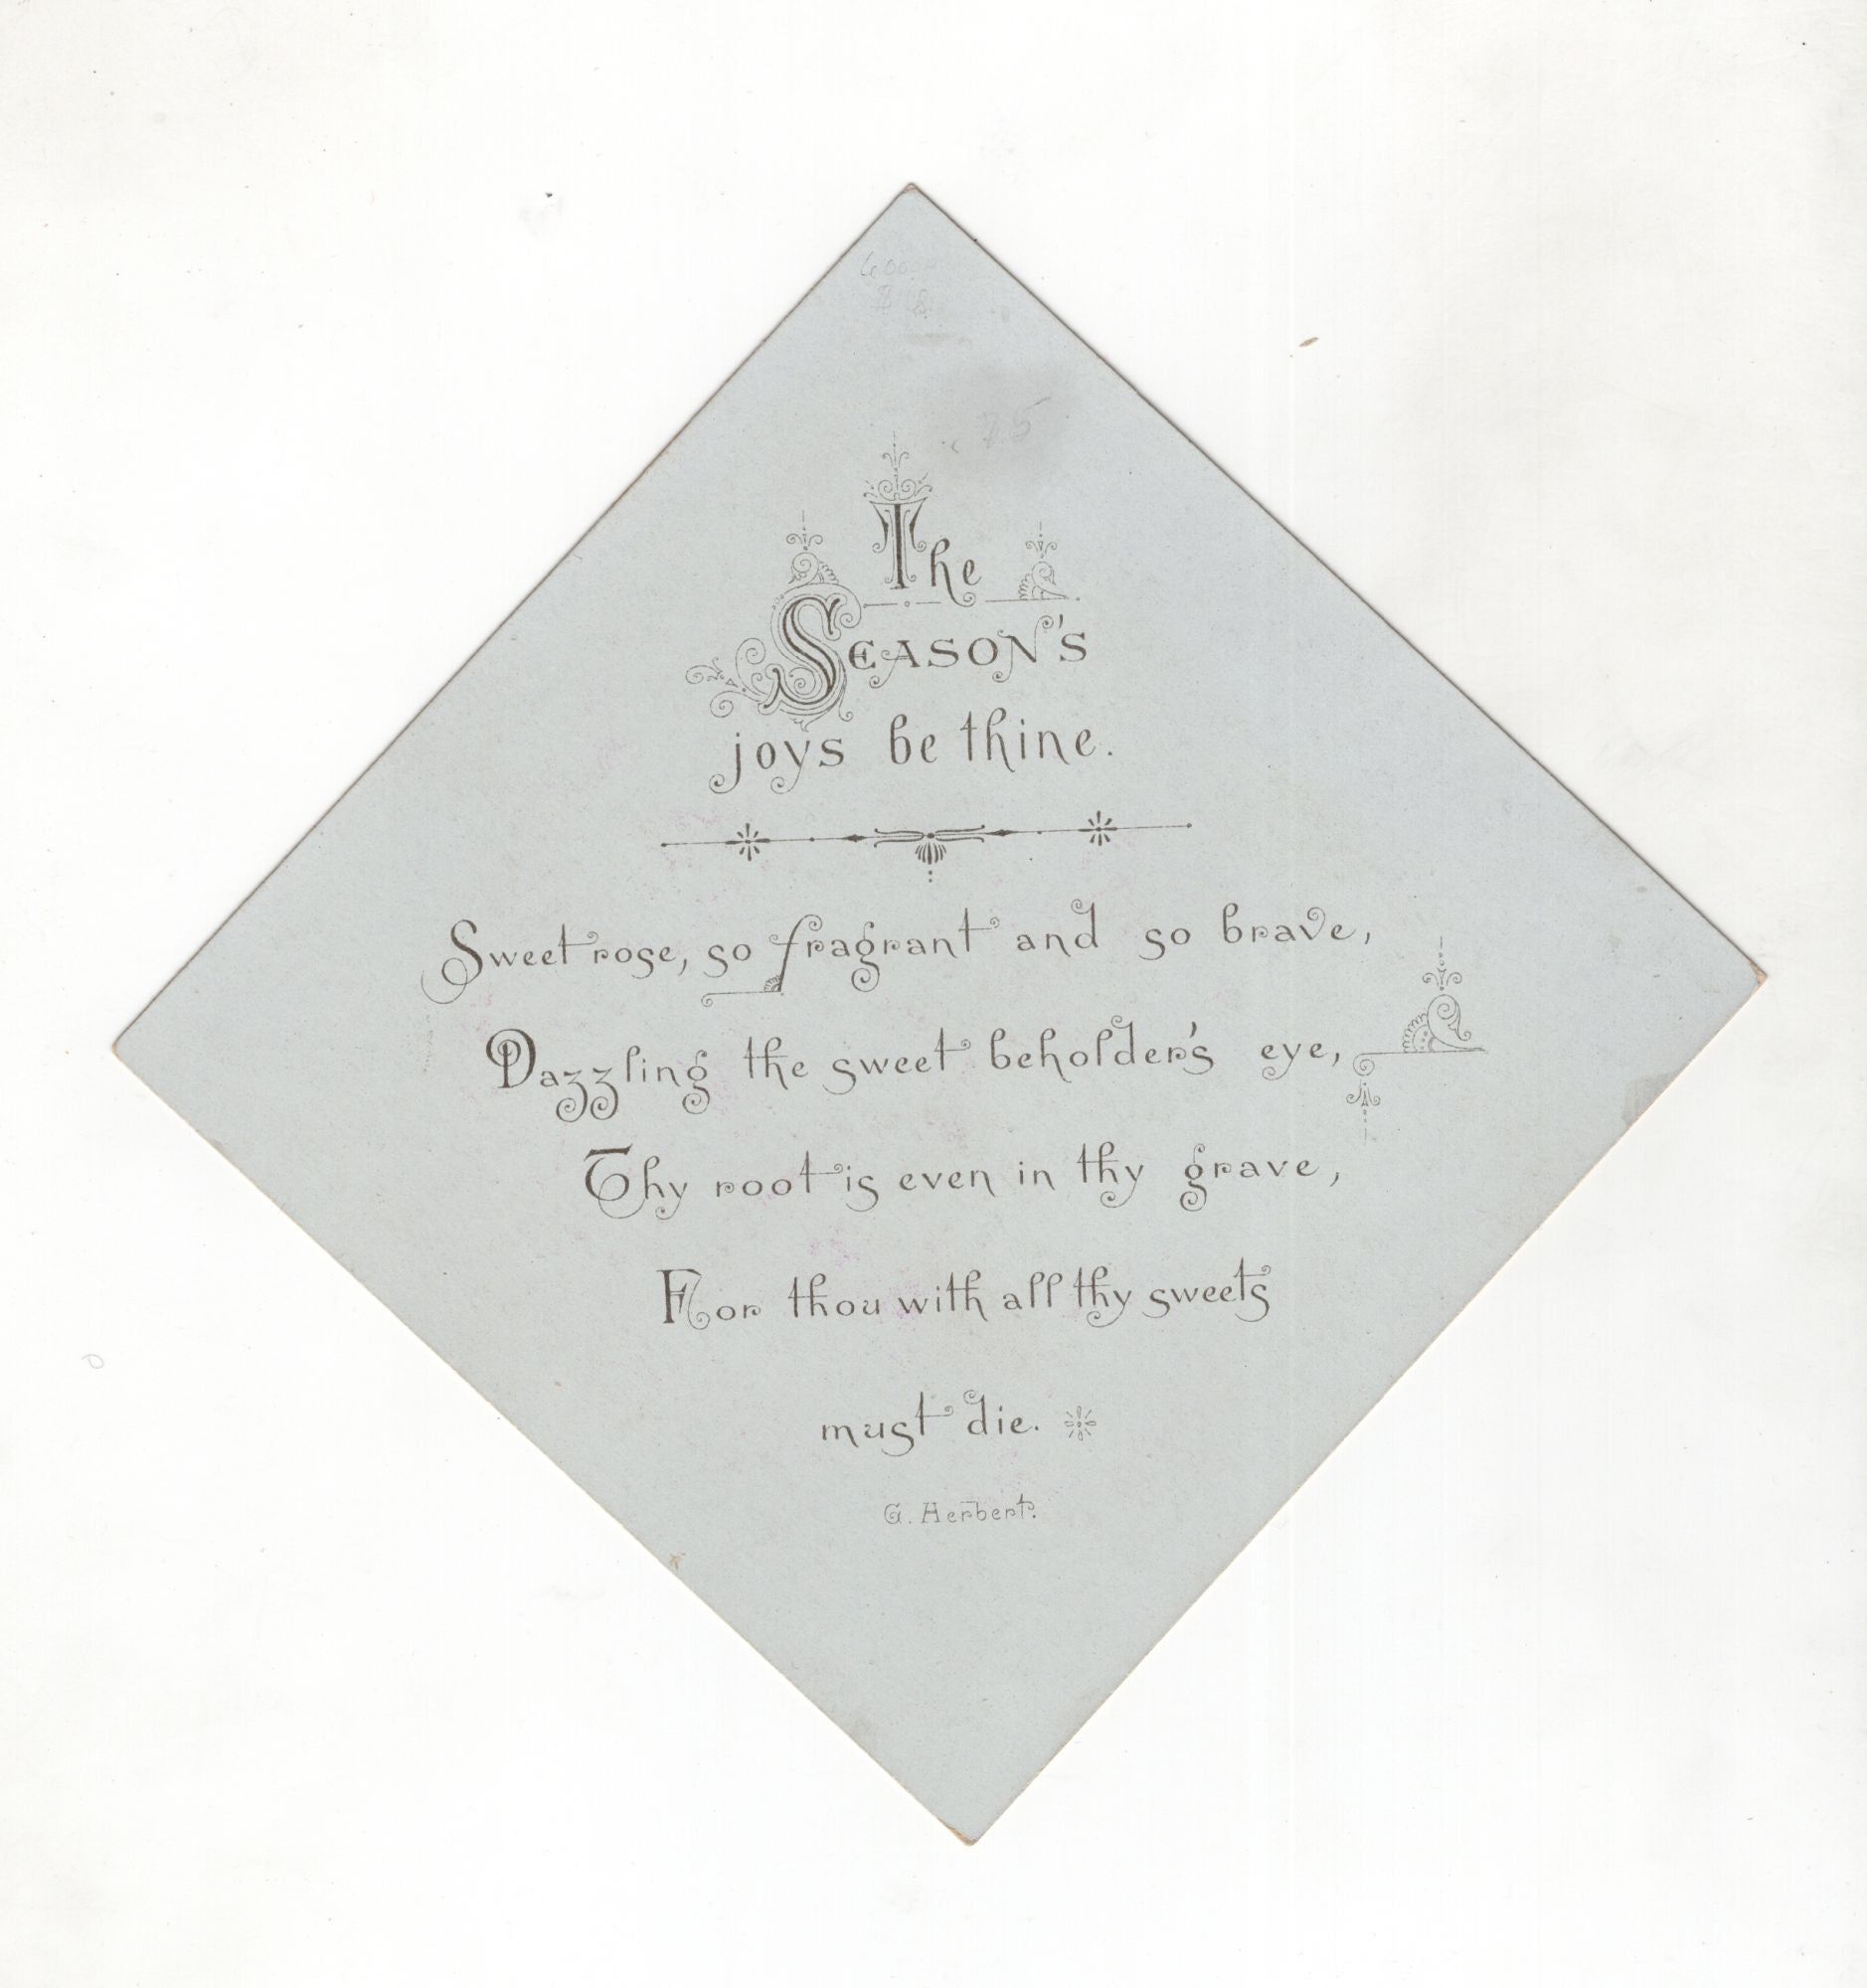 The
SEASON'S
joys be thine.
Sweet rose, so fragrant and so brave,
Dazzling the sweet beholder's eye,
Thy root is even in thy grave,
For thou with all thy sweets
must die.
G. Herbert.